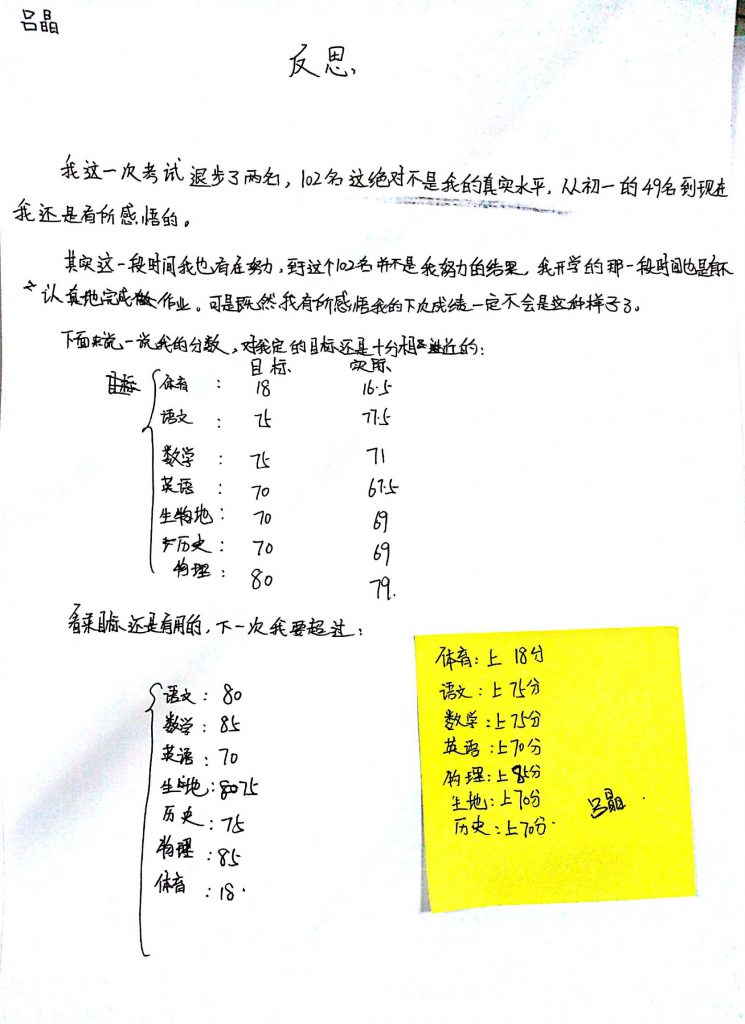 吕晶
反思、
我这一次考试退步了两名，102名这绝对不是我的真实水平，从初一的49名到现在
我还是有所感悟的。
其实这一段时间我也有在努力，到这个102名并不是我努力的结果，我开学的那一段时间也是有不
认真地完成作业。可是既然我有所感悟我的下次成绩一定不会是这种样子了。
下面来说一说我的分数，对我定的目标还是十分相近的：
目标、 实际、
目标 体育： 18 16.5
语文： 75 77.5
数学： 75 71
英语： 70 67.5
生物地： 70 69
历史： 70 69
物理： 80 79.
看来目标还是有用的，下一次我要超过：
语文：80
数学：85
英语：70
生地：75
历史：75
物理：85
体育：18.
体育：上 18分
语文：上75分
数学：上75分
英语：上70分
物理：上85分
生地：上70分
历史：上70分.
吕晶.